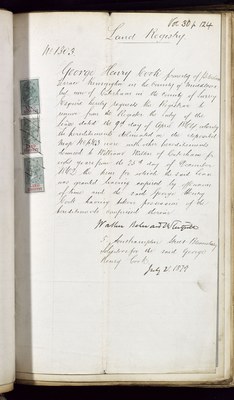 Vol 30 p 124
Land Registry
No 1303
George Henry Cook formerly of
Terrace Kennington in the County of Middlesex
but now of Caterham in the County of Surrey
Esquire hereby requests the Registrar to
remove from the Register the entry of the
lease dated the 9th day of April 1864 whereby
the hereditaments
were with other hereditaments
demised to William of Caterham for
years from the 25th day of December
1862 the term for which the said lease
was granted having expired by effluxion
of time and the said George Henry
Cook having taken possession of the
hereditaments comprised therein
5 Southampton Street Bloomsbury
Solicitors for the said George
Henry Cook
July 21. 1879